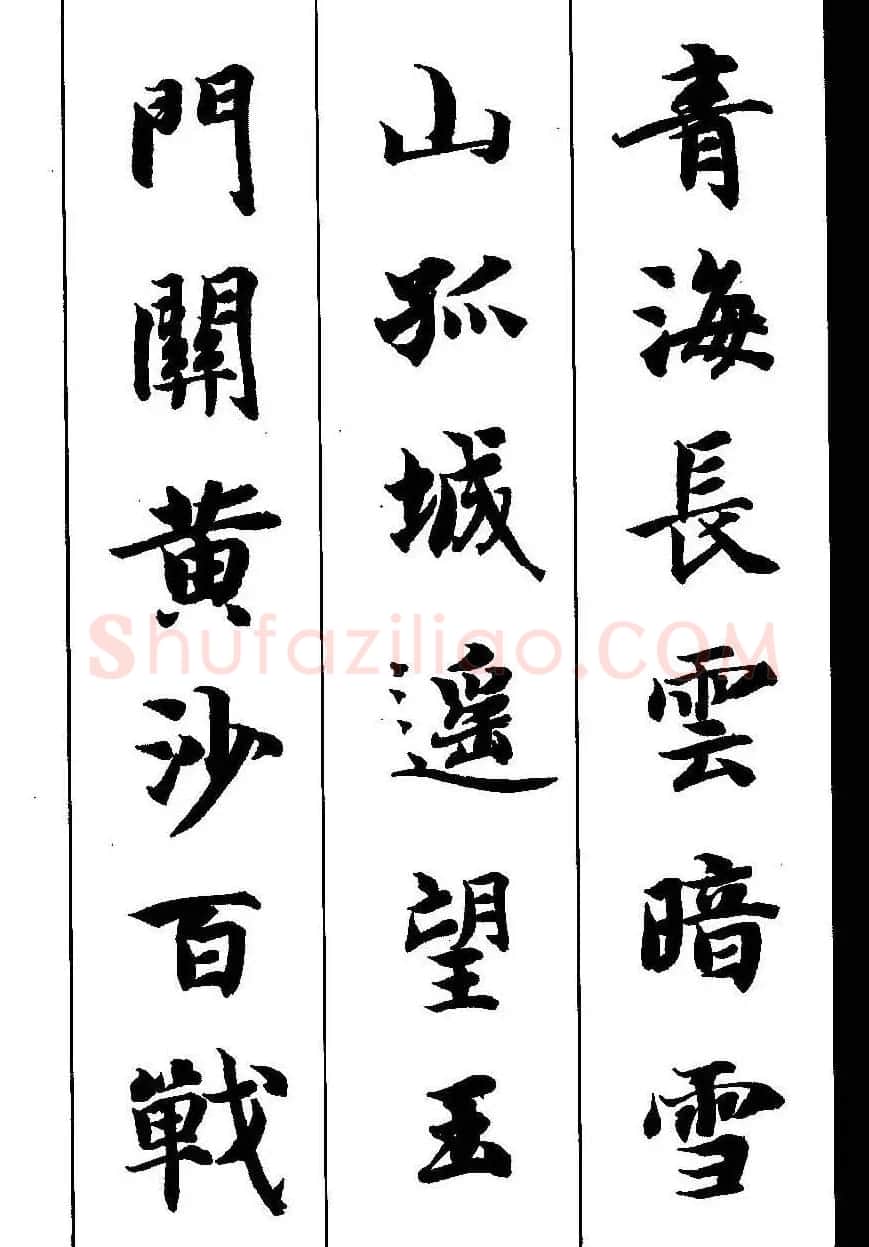 青海長雲暗雪
山孤城遥望玉
門關黄沙百戰
Shufaziliao.COM